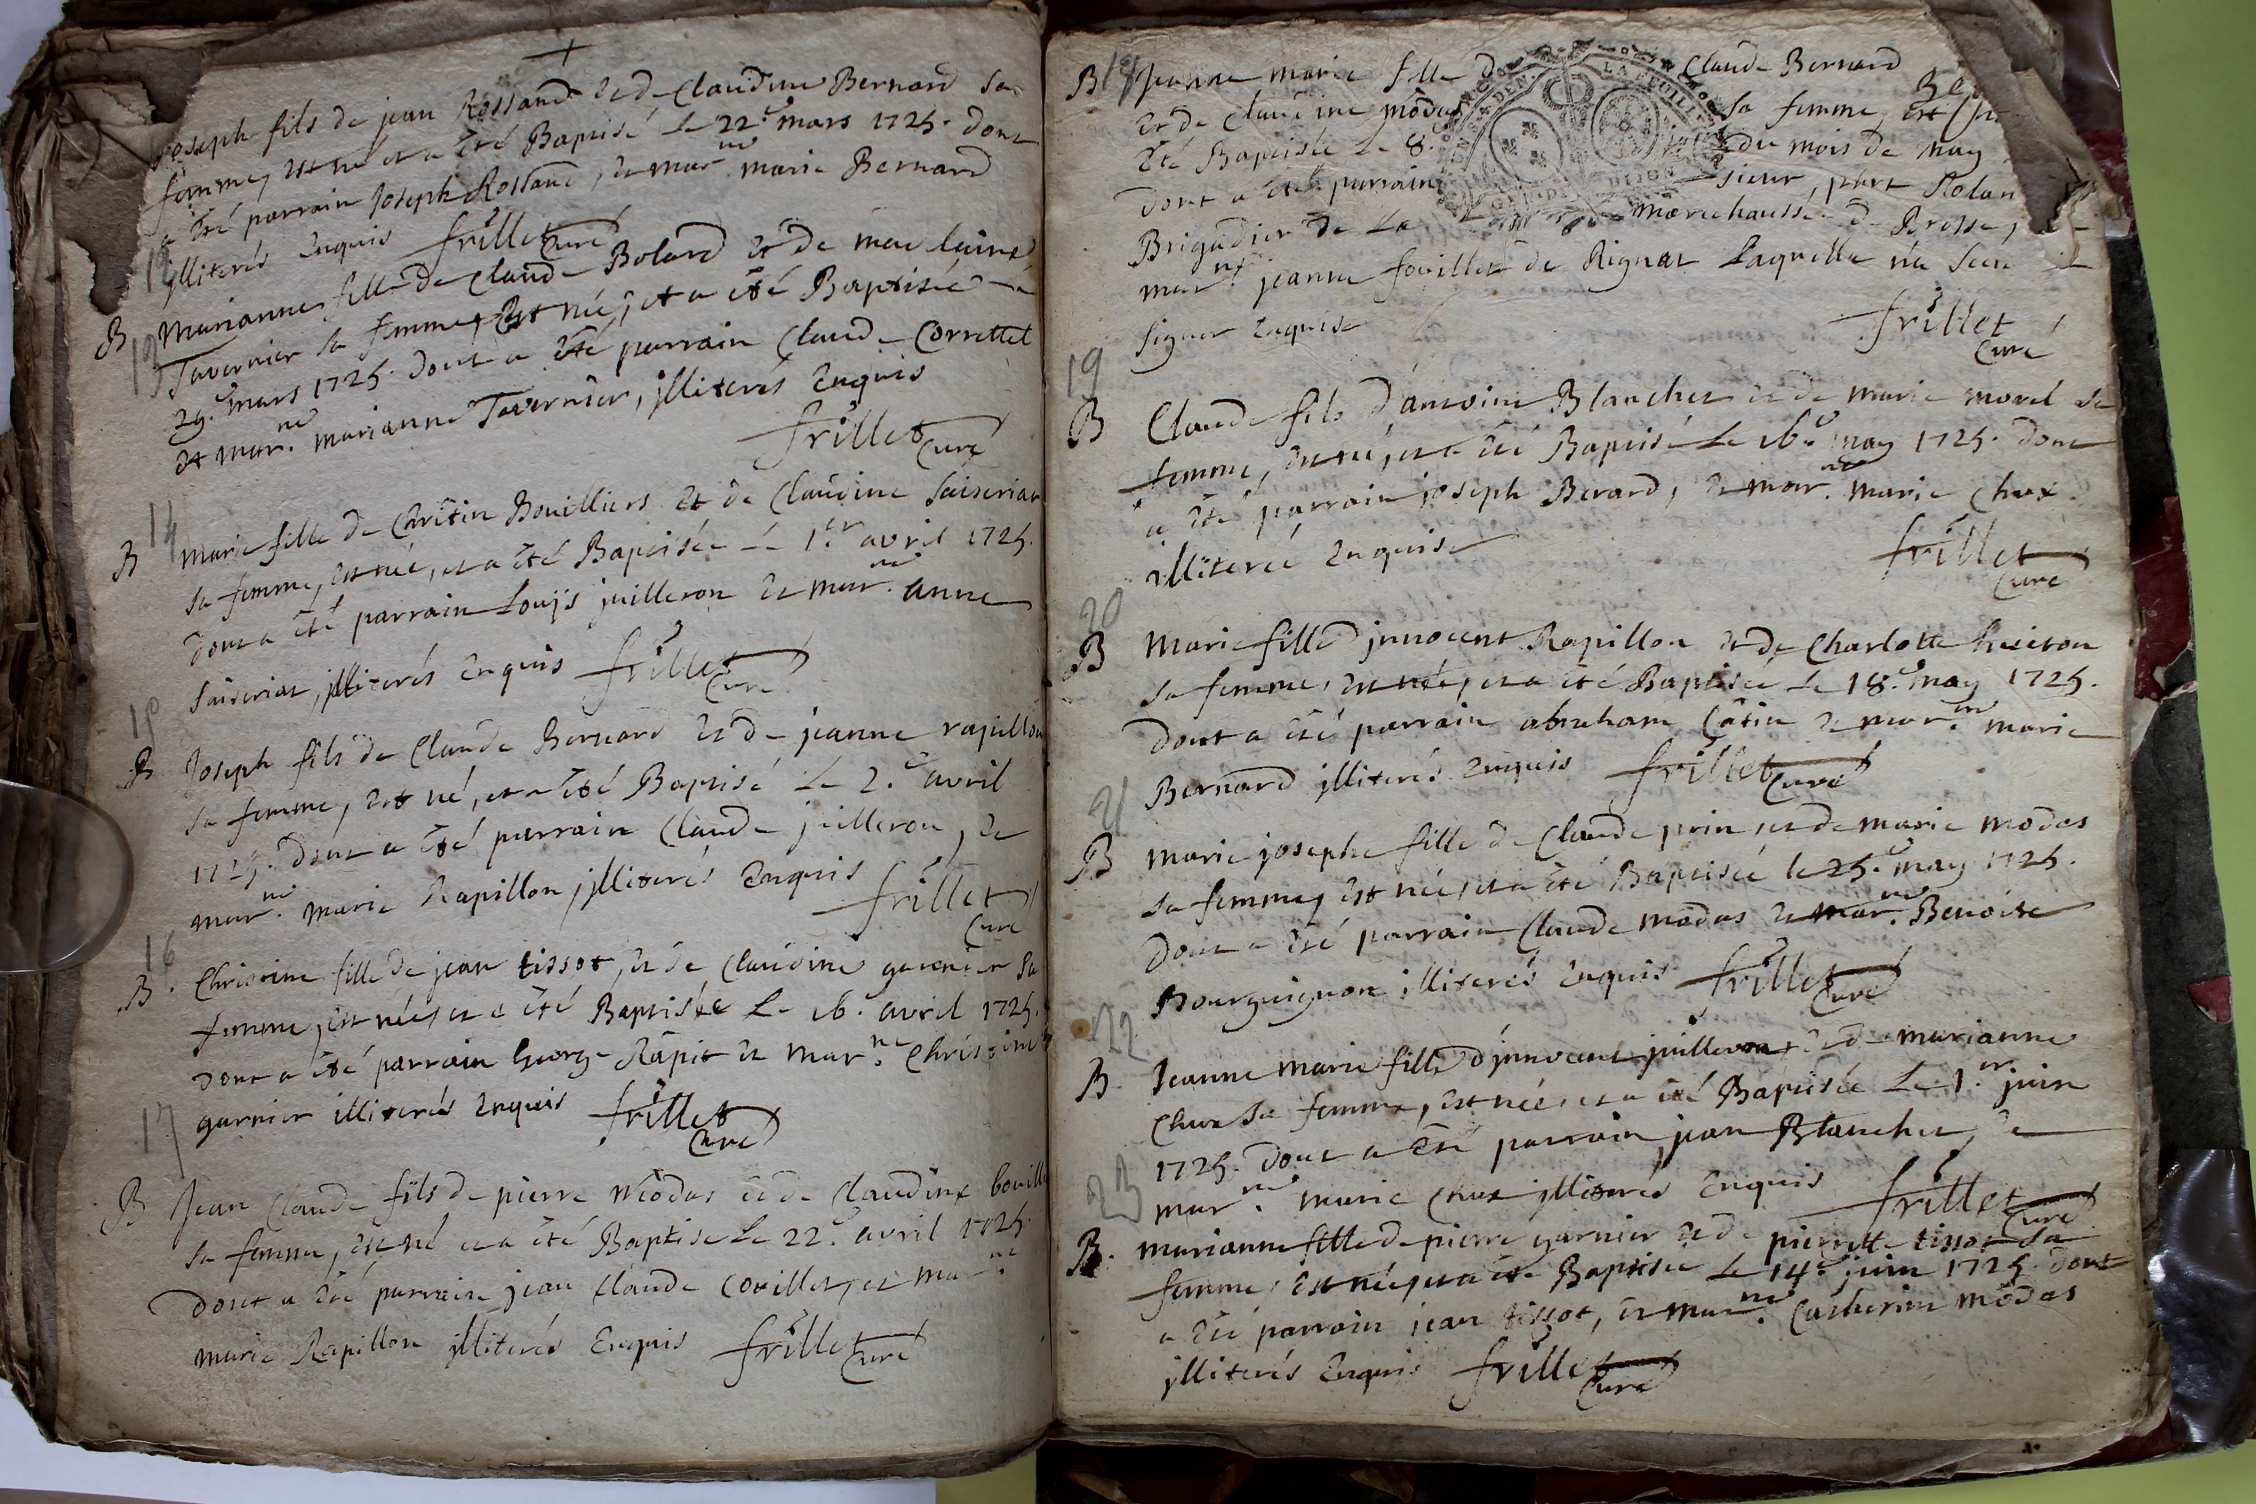 joseph fils de jean Rossand et de Claudine Bernard sa
femme, est né et a été Baptisé le 22.e mars 1725. dont
a été parrain joseph Rossand, et mar.ne marie Bernard
12
illiterés enquis frillet curé
B Marianne fille de Claude Bolard et de mae laine
13
Tavernier sa femme, est née, et a été Baptisée
29.e mars 1725. dont a été parrain Claude Correttet
et mar.ne marianne Tavernier, illiterés enquis
frillet curé
14
B Marie fille de Chritin Bouilliers et de Claudine saiseriat
sa femme, est née, et a été Baptisée le 1.er avril 1725.
dont a été parrain Louijs juilleron et mar.ne anne
saiseriat, illiterés enquis frillet curé
15
B Joseph fils de Claude Bernard et de jeanne rapillon
sa femme, est né, et a été Baptisé le 2.e avril
1725. dont a été parrain Claude juilleron, et
mar.ne marie Rapillon, illiterés enquis frillet
curé
16
B. Christine fille de jean tissot, et de Claudine garnier sa
femme, est née, et a été Baptisée le 16. avril 1725.
dont a été parrain George Rapit et mar.ne Christine
garnier illiterés enquis frillet
curé
17
B Jean Claude fils de pierre modas et de Claudine bouill
sa femme, est né et a été Baptisé le 22.e avril 1725.
dont a été parrain jean Claude Covillet, et mar.ne
marie Rapillon illiterés enquis frillet curé
B 18 Jeanne marie fille d Claude Bernard
et de Claudine modas sa femme, est
été Baptisée le 8. du mois de may
dont a été parrain sieur, Rolan
Brigadier de La marechaussé de Bresse,
mar.ne jeanne fouillet de Rignat Laquelle n'a sceu
signer enquise frillet
curé
19
B Claude fils d'antoine Blanchet et de marie morel sa
femme, est né, et a été Baptisé le 16.e may 1725. dont
a été parrain joseph Berard, et mar.ne marie Chux
illiterée enquise frillet
curé
20
B Marie fille d'innocent Rapillon et de Charlotte
sa femme, est née, et a été Baptisée le 18.e may 1725.
dont a été parrain abraham Câtin et mar.ne marie
Bernard illiterés enquis frillet curé
21
B Marie josephe fille de Claude prin et de marie modas
sa femme, est née, et a été Baptisée le 25.e may 1725.
dont a été parrain Claude modas et mar.ne Benoite
Bourguignon illiterés enquis frillet curé
22
B. Jeanne Marie fille d'innocent juilleron et de marianne
Chux sa femme, est née, et a été Baptisée le 1.er juin
1725. dont a été parrain jean Blanchet, et
mar.ne marie Chux illiterés enquis frillet
curé
23
B. marianne fille de pierre garnier et de pierrette tissot sa
femme, est née, et a été Baptisée le 14.e juin 1725. dont
a été parrain jean tissot, et mar.ne Catherine modas
illiterés enquis frillet curé